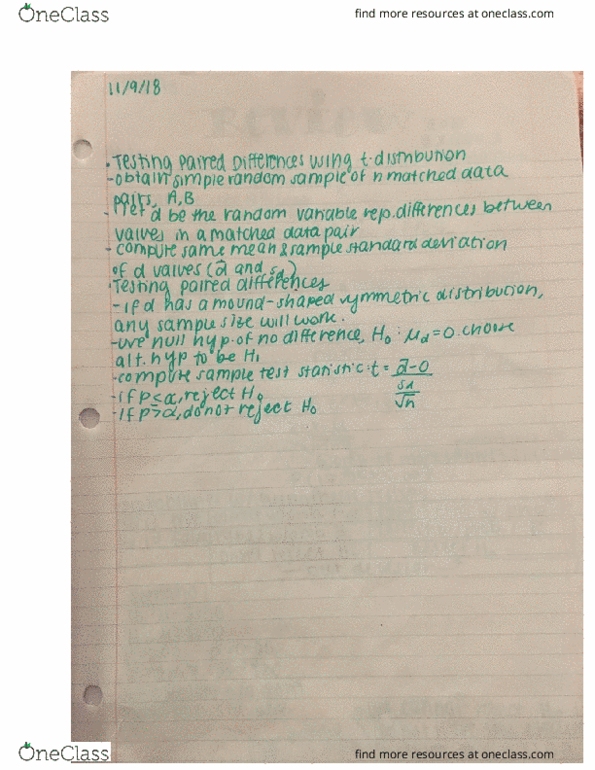 OneClass
find more resources at oneclass.com
11/9/18
• Testing Paired Differences using t-distribution
- obtain simple random sample of n matched data
pairs, A,B
- let d be the random variable rep. differences between
values in a matched data pair
- compute same mean & sample standard deviation
of d values (d̄ and sd)
• Testing paired differences
- if d has a mound-shaped symmetric distribution,
any sample size will work.
- use null hyp. of no difference, H₀: μd = 0. choose
alt. hyp to be H₁
- compute sample test statistic: t = d̄-0
sd
√n
- if P≤α, reject H₀
- if P>α, do not reject H₀
OneClass
find more resources at oneclass.com